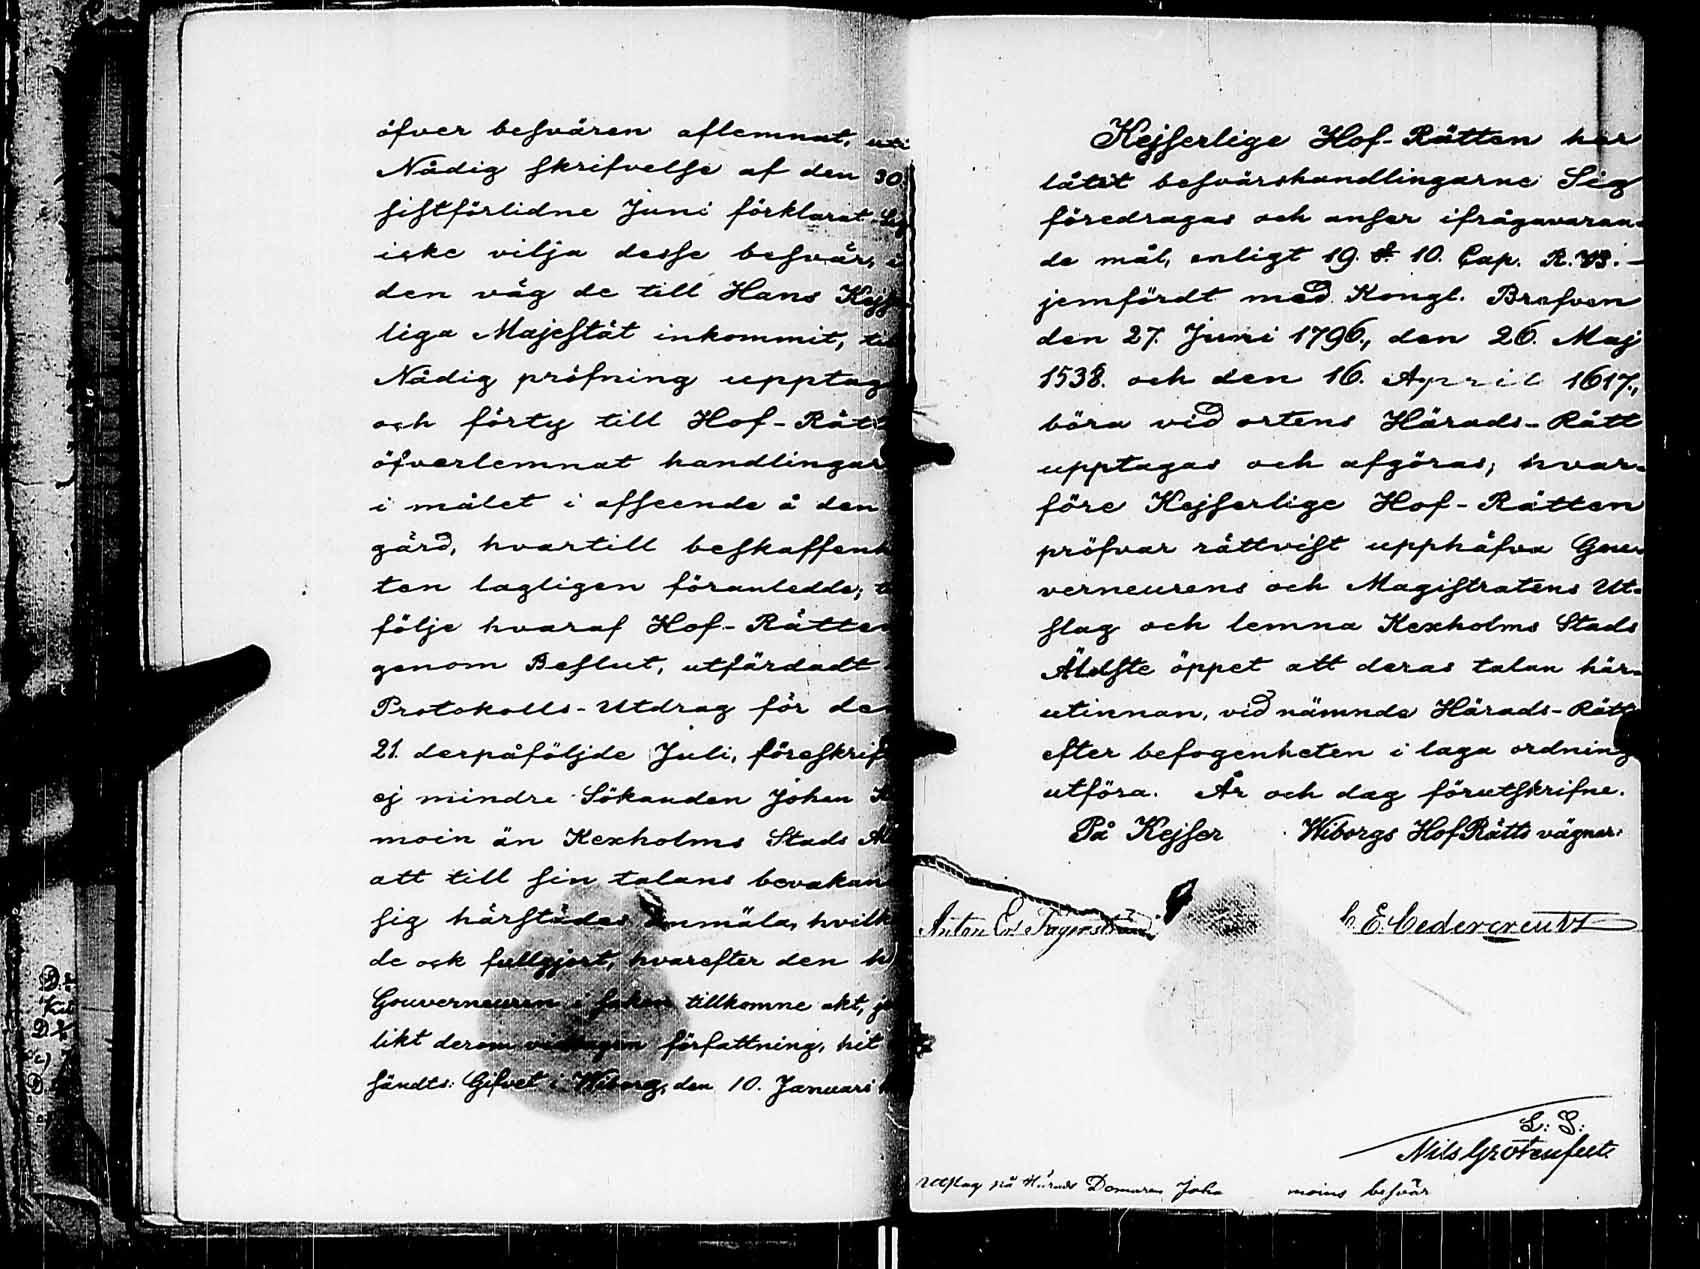 öfver besvären aflemnat, uti
Nådig skrifvelse af den 30
sistförlidne Juni förklarat Sig
icke vilja desse besvär, i
den väg de till Hans Kejser
liga Majestät inkommit, til
Nådig pröfning upptag
och förty till Hof-Rätt
öfverlemnat handlingar
i målet i afseende å den
gärd, hvartill beskaffenh
ten lagligen föranledde; t
följe hvaraf Hof-Rätten
genom Beslut, utfärdadt
Protokolls-Utdrag för de
21. derpåföljde Juli, föreskrif
ej mindre Sökanden Johan
moin än Kexholms Stads Äl
att till sin talans bevakan
sig härstädes anmäla, hvilk
de ock fullgjort, hvarefter den
Gouverneuren i saken tillkomne akt, je
likt derom vedtagen författning, hit
sändts: Gifvet i Wiborg, den 10. Januari
Kejserlige Hof-Rätten har
låtit besvärshandlingarne Sig
föredragas och anser ifrågavaran-
de mål, enligt 19. §. 10. Cap. R. B. –
jemfördt med Kongl. Brefven
den 27. Juni 1796., den 26. Maj
1538. och den 16. April 1617.,
böra vid ortens Härads-Rätt
upptagas och afgöras; hvar-
före Kejserlige Hof-Rätten
pröfvar rättvist upphäfva Gou-
verneurens och Magistratens Ut-
slag och lemna Kexholms Stads
Äldste öppet att deras talan här-
utinnan, vid nämnde Härads-Rätt
efter befogenheten i laga ordning
utföra. År och dag förutskrifne.
På Kejser Wiborgs HofRätts vägnar:
Anton Ed. Fagerstrand C. E. Cedercreutz
L: S:
Nils Grotenfelt
Utslag på Härads Domaren Joha moins besvär